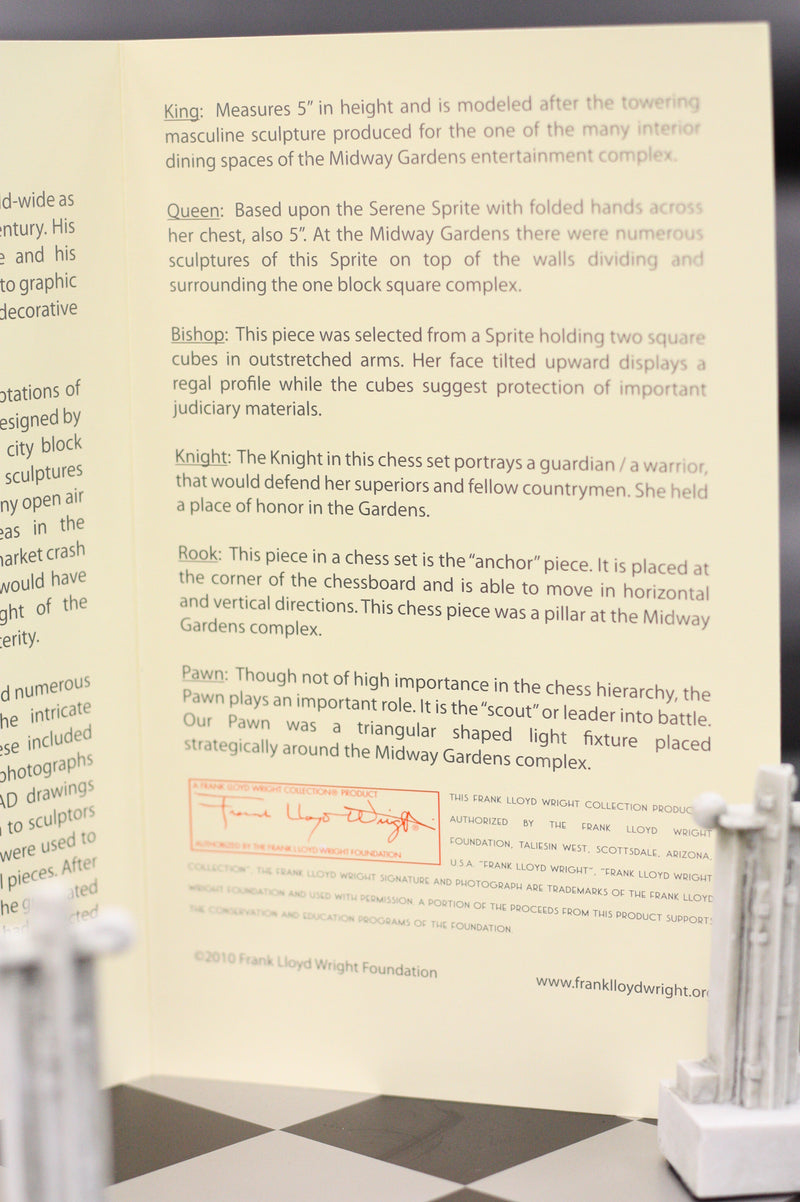 ld-wide as
entury. His
e and his
to graphic
decorative
otations of
esigned by
city block
sculptures
ny open air
eas in the
market crash
would have
ght of the
terity.
d numerous
he intricate
ese included
photographs
AD drawings
to sculptors
were used to
l pieces. After
he
King: Measures 5" in height and is modeled after the towering
masculine sculpture produced for the one of the many interior
dining spaces of the Midway Gardens entertainment complex.
Queen: Based upon the Serene Sprite with folded hands across
her chest, also 5". At the Midway Gardens there were numerous
sculptures of this Sprite on top of the walls dividing and
surrounding the one block square complex.
Bishop: This piece was selected from a Sprite holding two square
cubes in outstretched arms. Her face tilted upward displays a
regal profile while the cubes suggest protection of important
judiciary materials.
Knight: The Knight in this chess set portrays a guardian / a warrior,
that would defend her superiors and fellow countrymen. She held
a place of honor in the Gardens.
Rook: This piece in a chess set is the "anchor" piece. It is placed at
the corner of the chessboard and is able to move in horizontal
and vertical directions. This chess piece was a pillar at the Midway
Gardens complex.
Pawn: Though not of high importance in the chess hierarchy, the
Pawn plays an important role. It is the "scout" or leader into battle.
Our Pawn was a triangular shaped light fixture placed
strategically around the Midway Gardens complex.
A FRANK LLOYD WRIGHT COLLECTION® PRODUCT
Frank Lloyd Wright®
AUTHORIZED BY THE FRANK LLOYD WRIGHT FOUNDATION
THIS FRANK LLOYD WRIGHT COLLECTION PRODUC
AUTHORIZED BY THE FRANK LLOYD WRIGHT
FOUNDATION, TALIESIN WEST, SCOTTSDALE, ARIZONA,
U.S.A. "FRANK LLOYD WRIGHT", "FRANK LLOYD WRIGHT
COLLECTION", THE FRANK LLOYD WRIGHT SIGNATURE AND PHOTOGRAPH ARE TRADEMARKS OF THE FRANK LLOYD
WRIGHT FOUNDATION AND USED WITH PERMISSION. A PORTION OF THE PROCEEDS FROM THIS PRODUCT SUPPORTS
THE CONSERVATION AND EDUCATION PROGRAMS OF THE FOUNDATION.
©2010 Frank Lloyd Wright Foundation
www.franklloydwright.org